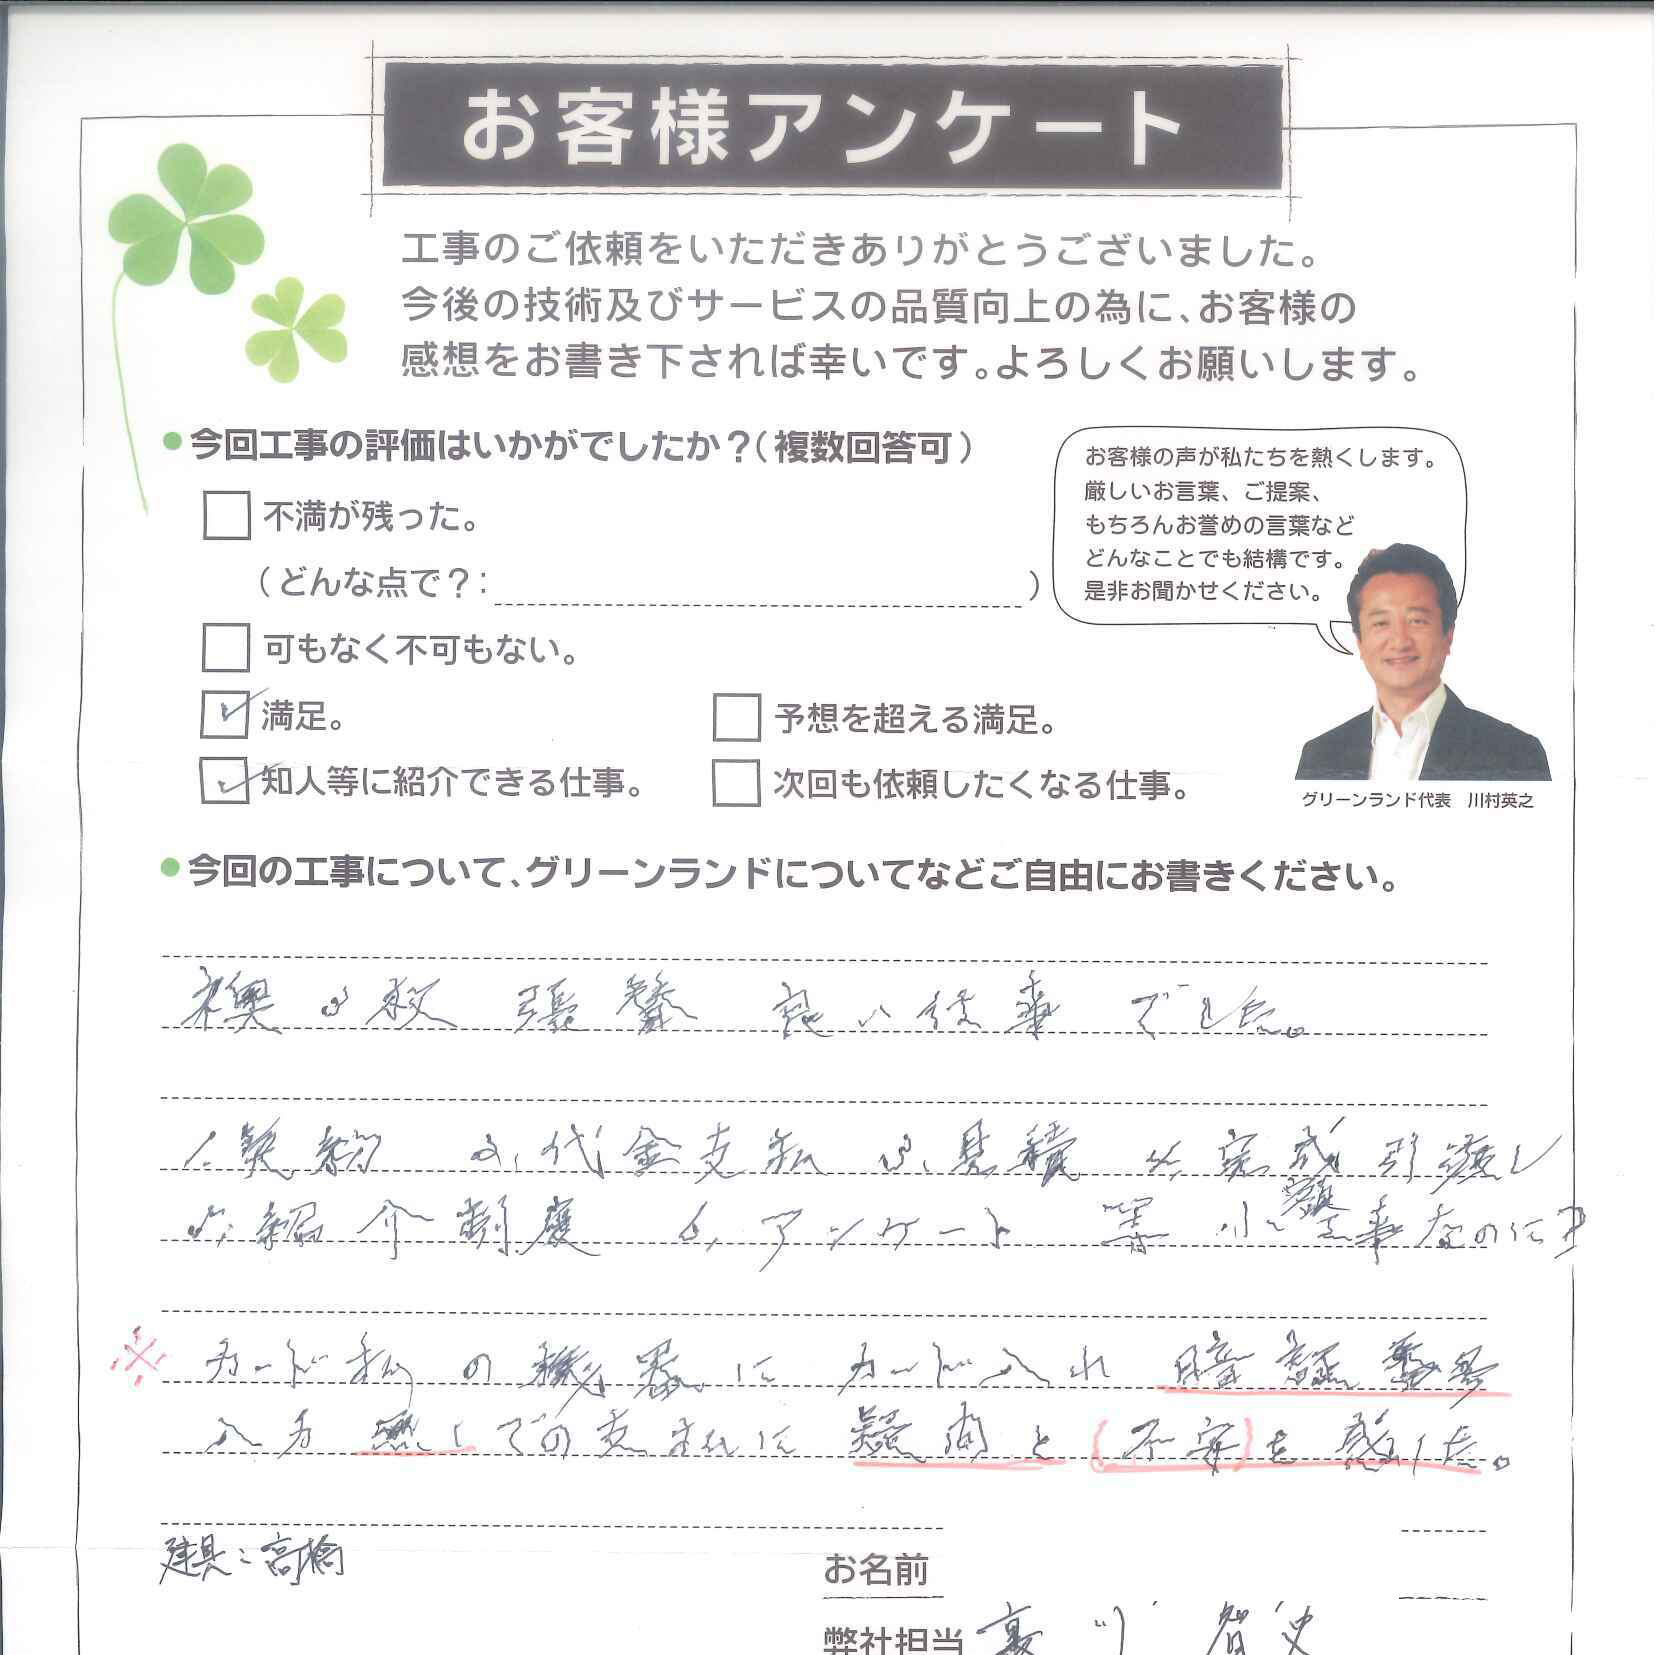 お客様アンケート
工事のご依頼をいただきありがとうございました。
今後の技術及びサービスの品質向上の為に、お客様の
感想をお書き下されば幸いです。よろしくお願いします。
今回工事の評価はいかがでしたか？（複数回答可）
不満が残った。
（どんな点で？：　）
可もなく不可もない。
満足。
予想を超える満足。
知人等に紹介できる仕事。
次回も依頼したくなる仕事。
お客様の声が私たちを熱くします。
厳しいお言葉、ご提案、
もちろんお誉めの言葉など
どんなことでも結構です。
是非お聞かせください。
グリーンランド代表　川村英之
今回の工事について、グリーンランドについてなどご自由にお書きください。
襖の 張替 良い仕事でした。
1.契約 2.代金支払 3.見積 4.完成引渡し
5.紹介制度 6.アンケート 等 小額工事なのに?
※ カード払の機器にカード入れ 暗証番号
入力 無しでの支払に 疑問と(不安)を感じた。
建具：高橋
お名前
弊社担当 智史